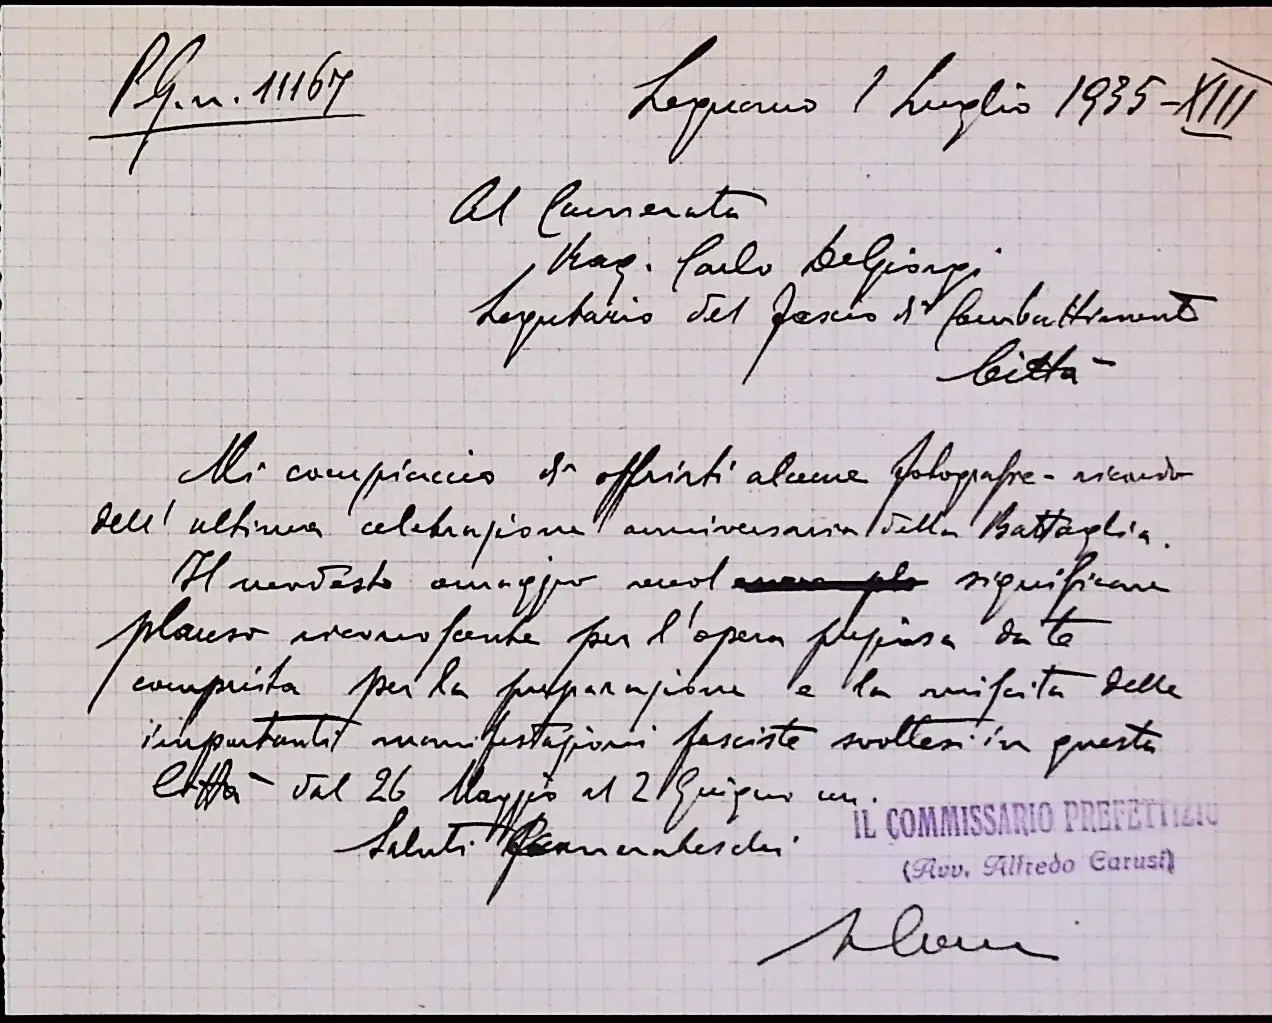 P.G.n. 11167
Legnano 1 Luglio 1935-XIII
Al Camerata
Rag. Carlo DelGiorgi
Segretario del Fascio di Combattimento
Città
Mi compiaccio di offrirti alcune fotografie-ricordo
dell'ultima celebrazione anniversaria della Battaglia.
Il modesto omaggio vuol significare
plauso riconoscente per l'opera preziosa da te
compiuta per la preparazione e la riuscita delle
importanti manifestazioni fasciste svoltesi in questa
Città dal 26 Maggio al 2 Giugno
Saluti Camerateschi
IL COMMISSARIO PREFETTIZIO
(Avv. Alfredo Carusi)